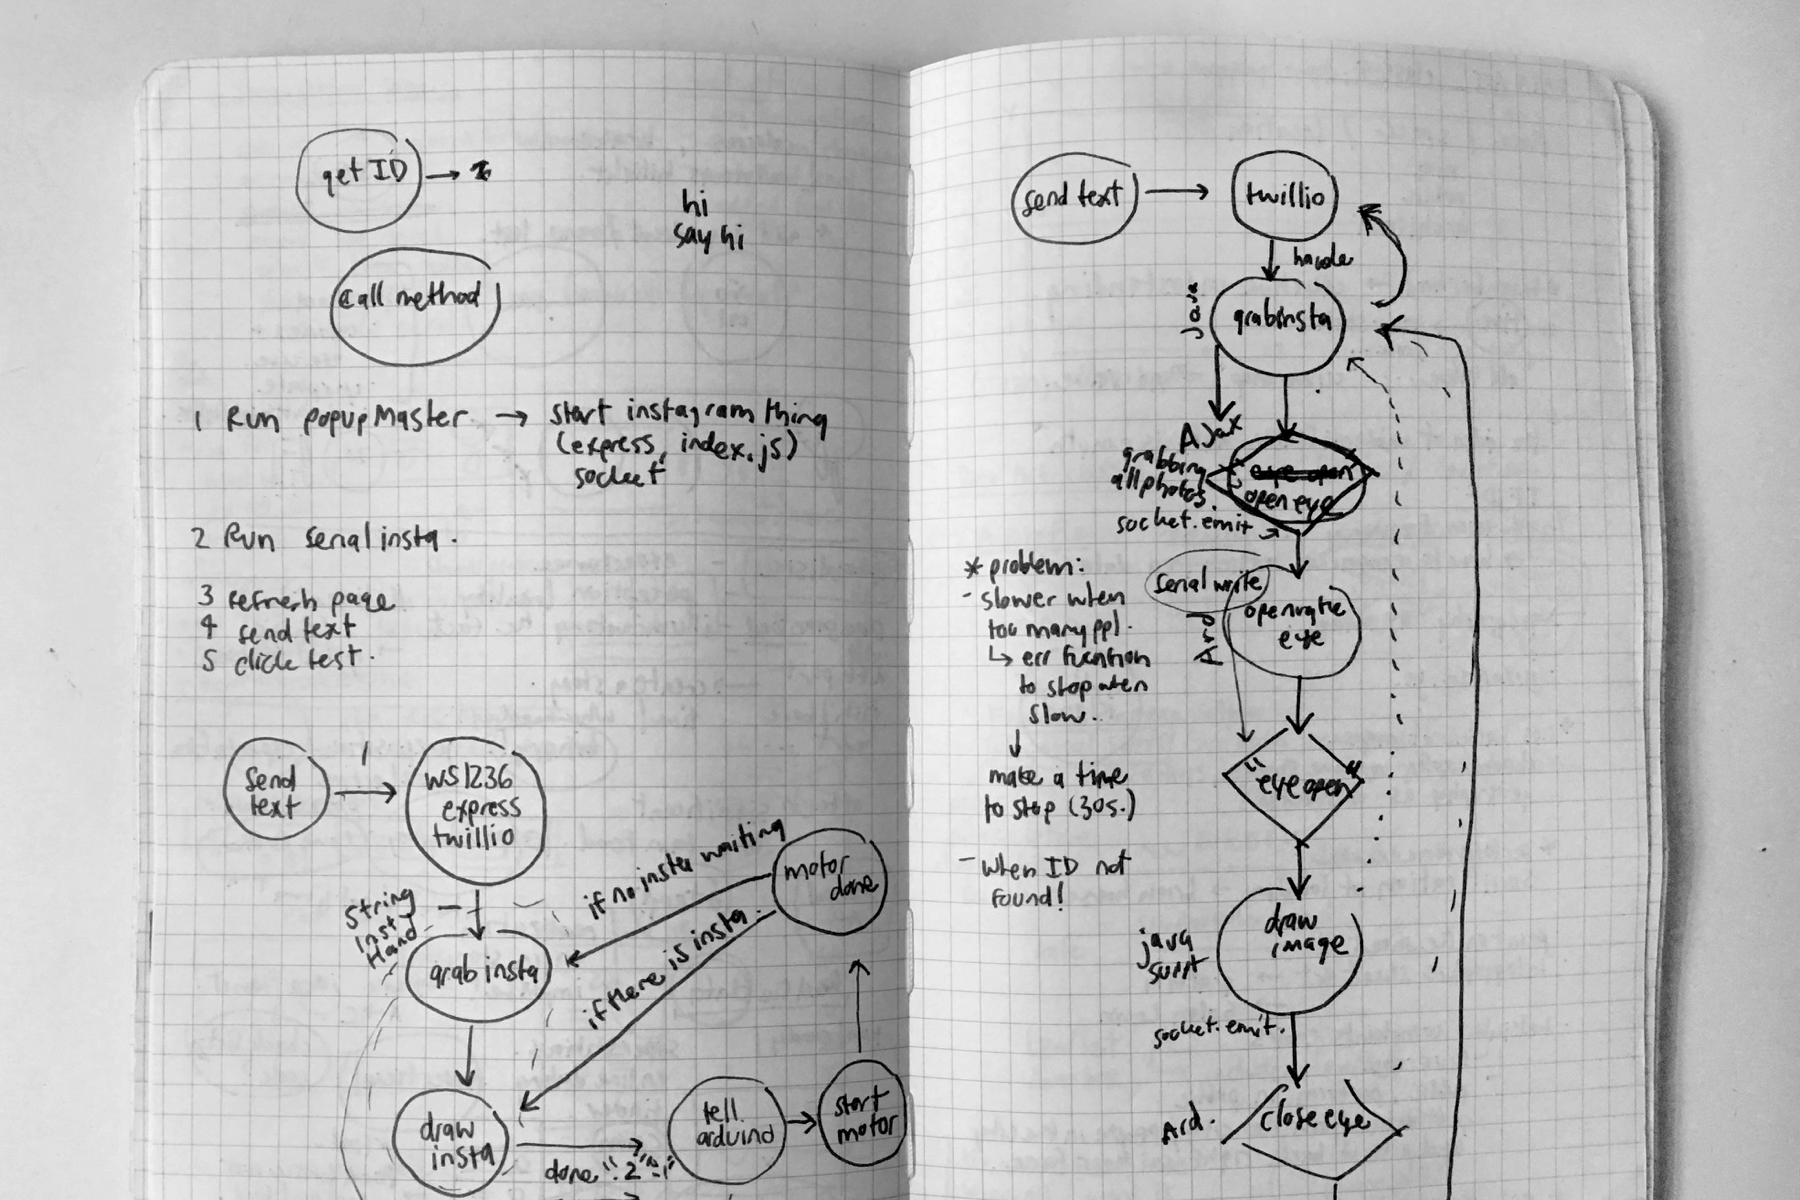 get ID
hi
say hi
call method
1 Run popupMaster → start instagram thing
(express, index.js)
socket
2 Run serial insta.
3 refresh page
4 send text
5 click test.
send
text
1
WS1236
express
twillio
String
Insta
Hand
grab insta
if no insta waiting
if there is insta
motor
done
draw
insta
done "2" "1"
tell
arduino
start
motor
send text
twillio
handle
Java
grabinsta
AJax
grabbing
all photos
socket.emit
eye open
open eye
* problem:
- slower when
too many ppl.
↳ err function
to stop when
slow.
↓
make a time
to stop (30s.)
- when ID not
found!
serial write
Ard
eye
"eye open"
java
draw
image
socket.emit.
Ard.
close eye